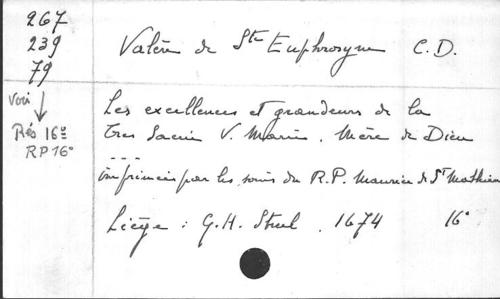 267
239
79
voir
Rés 16°
RP 16°
Valère de Ste Euphrosyne C.D.
Les excellences et grandeurs de la
très Sacrée V. Marie, Mère de Dieu
...
imprimées par les soins du R.P. Maurice de St Mathieu
Liège : G.H. Streel . 1674 16°